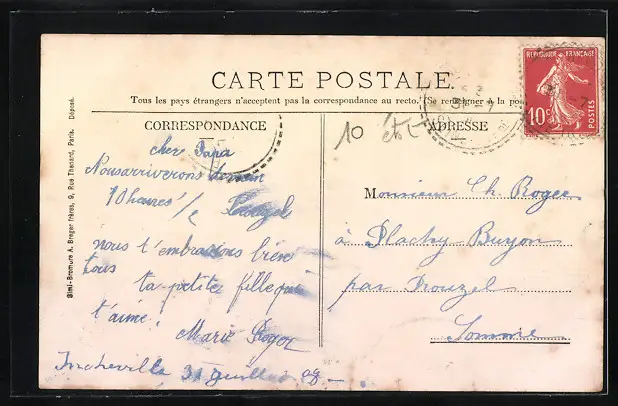 CARTE POSTALE.
Tous les pays étrangers n'acceptent pas la correspondance au recto. (Se renseigner à la pos
CORRESPONDANCE
cher Papa
Nous arriverons demain
10 heures 1/2
nous t'embrassons bien
tous
ta petite fille qui
t'aime!
Marie Roger
Incheville 31 juillet 08
10
ADRESSE
Monsieur Ch. Roger
à Plachy Buyon
par Prouzel
Somme
REPUBLIQUE FRANÇAISE
10c
POSTES
Simi-Bromure A. Breger frères, 9, Rue Thenard, Paris. Déposé.